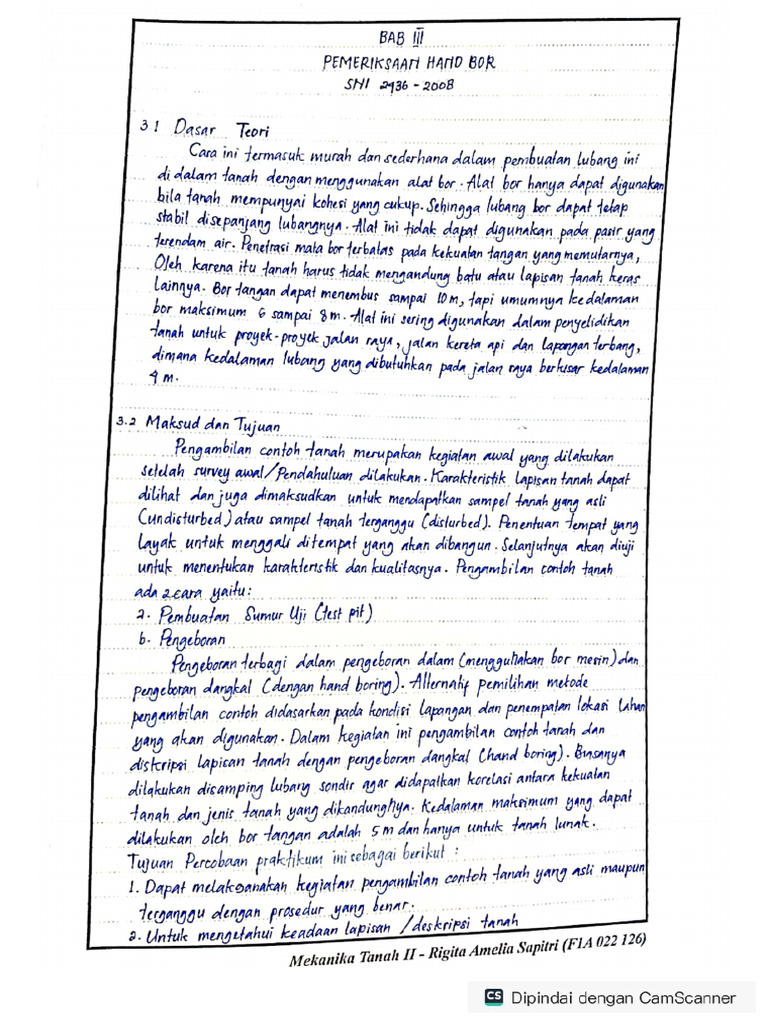 BAB III
PEMERIKSAAN HAND BOR
SNI 2436-2008
3.1 Dasar Teori
Cara ini termasuk murah dan sederhana dalam pembuatan lubang ini
di dalam tanah dengan menggunakan alat bor. Alat bor hanya dapat digunakan
bila tanah mempunyai kohesi yang cukup. Sehingga lubang bor dapat tetap
stabil disepanjang lubangnya. Alat ini tidak dapat digunakan pada pasir yang
terendam air. Penetrasi mata bor terbatas pada kekuatan tangan yang memutarnya,
Oleh karena itu tanah harus tidak mengandung batu atau lapisan tanah keras
Lainnya. Bor tangan dapat menembus sampai 10 m, tapi umumnya kedalaman
bor maksimum 6 sampai 8 m. Alat ini sering digunakan dalam penyelidikan
tanah untuk proyek-proyek jalan raya, jalan kereta api dan lapangan terbang,
dimana kedalaman lubang yang dibutuhkan pada jalan raya berkisar kedalaman
4 m.
3.2 Maksud dan Tujuan
Pengambilan contoh tanah merupakan kegiatan awal yang dilakukan
setelah survey awal/Pendahuluan dilakukan. Karakteristik lapisan tanah dapat
dilihat dan juga dimaksudkan untuk mendapatkan sampel tanah yang asli
(undisturbed) atau sampel tanah terganggu (disturbed). Penentuan tempat yang
layak untuk menggali ditempat yang akan dibangun. Selanjutnya akan diuji
untuk menentukan karakteristik dan kualitasnya. Pengambilan contoh tanah
ada 2 cara yaitu:
a. Pembuatan Sumur Uji (test pit)
b. Pengeboran
Pengeboran terbagi dalam pengeboran dalam (menggunakan bor mesin) dan
pengeboran dangkal (dengan hand boring). Alternatif pemilihan metode
pengambilan contoh didasarkan pada kondisi lapangan dan penempatan lokasi lahan
yang akan digunakan. Dalam kegiatan ini pengambilan contoh tanah dan
diskripsi lapisan tanah dengan pengeboran dangkal (hand boring). Biasanya
dilakukan disamping lubang sondir agar didapatkan korelasi antara kekuatan
tanah dan jenis tanah yang dikandungnya. Kedalaman maksimum yang dapat
dilakukan oleh bor tangan adalah 5 m dan hanya untuk tanah lunak.
Tujuan Percobaan praktikum ini sebagai berikut :
1. Dapat melaksanakan kegiatan pengambilan contoh tanah yang asli maupun
terganggu dengan prosedur yang benar.
2. Untuk mengetahui keadaan lapisan /deskripsi tanah
Mekanika Tanah II - Rigita Amelia Sapitri (F1A 022 126)
CS Dipindai dengan CamScanner